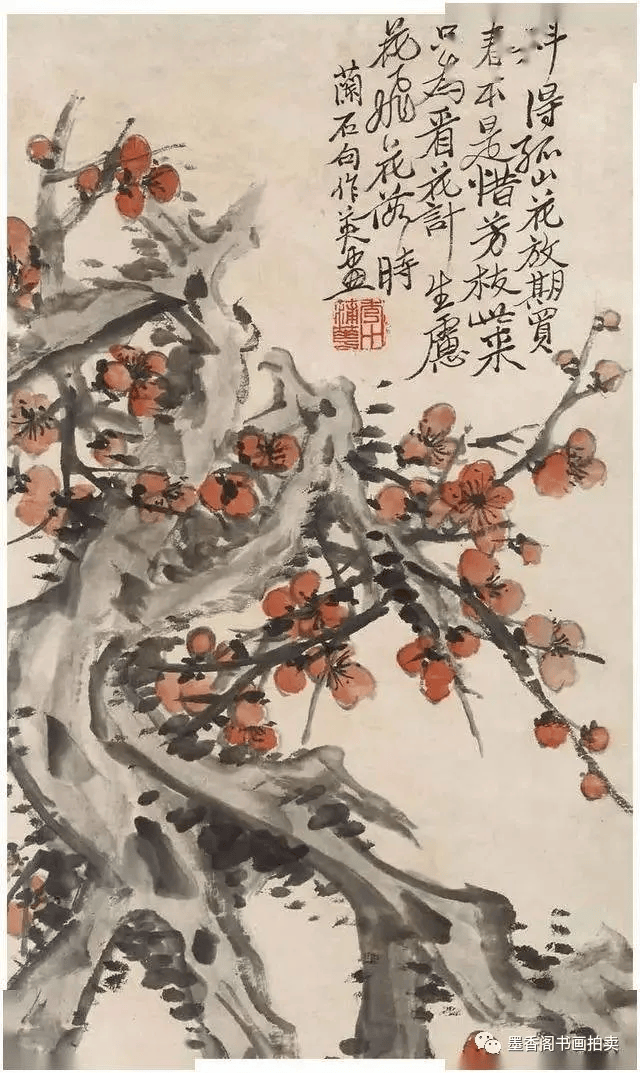 得孤山花放期買
春不是惜芳枝此来
只為看花計生慮
花飛花落時
蘭石句作英画
墨香阁书画拍卖